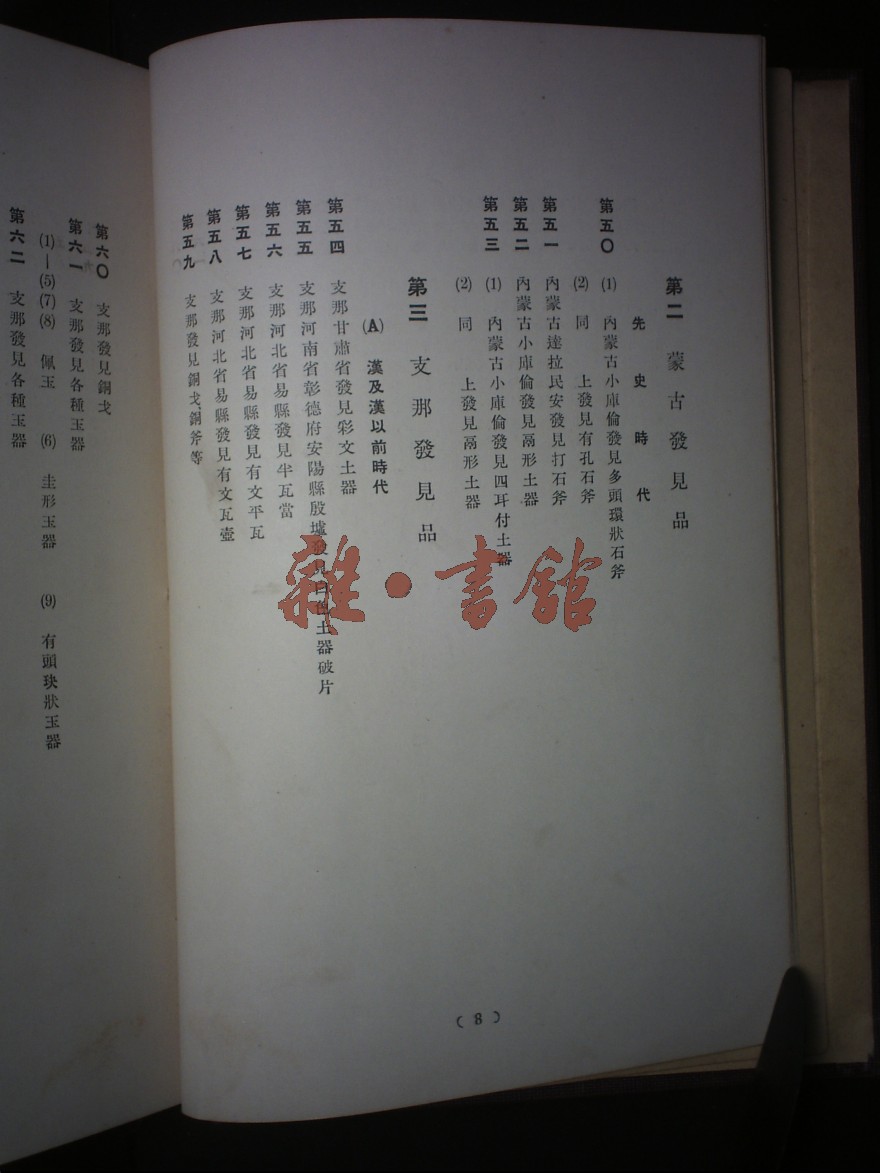 第二 蒙古發見品
先史時代
第五〇 (1) 內蒙古小庫倫發見多頭環狀石斧
(2) 同 上發見有孔石斧
第五一 內蒙古達拉民安發見打石斧
第五二 內蒙古小庫倫發見鬲形土器
第五三 (1) 內蒙古小庫倫發見四耳付土器
(2) 同 上發見鬲形土器
第三 支那發見品
(A) 漢及漢以前時代
第五四 支那甘肅省發見彩文土器
第五五 支那河南省彰德府安陽縣殷墟發見白色土器破片
第五六 支那河北省易縣發見半瓦當
第五七 支那河北省易縣發見有文平瓦
第五八 支那河北省易縣發見有文瓦壺
第五九 支那發見銅戈、銅斧等
(8)
第六〇 支那發見銅戈
第六一 支那發見各種玉器
(1)—(5)(7)(8) 佩玉 (6) 圭形玉器 (9) 有頭玦狀玉器
第六二 支那發見各種玉器
雜·書館